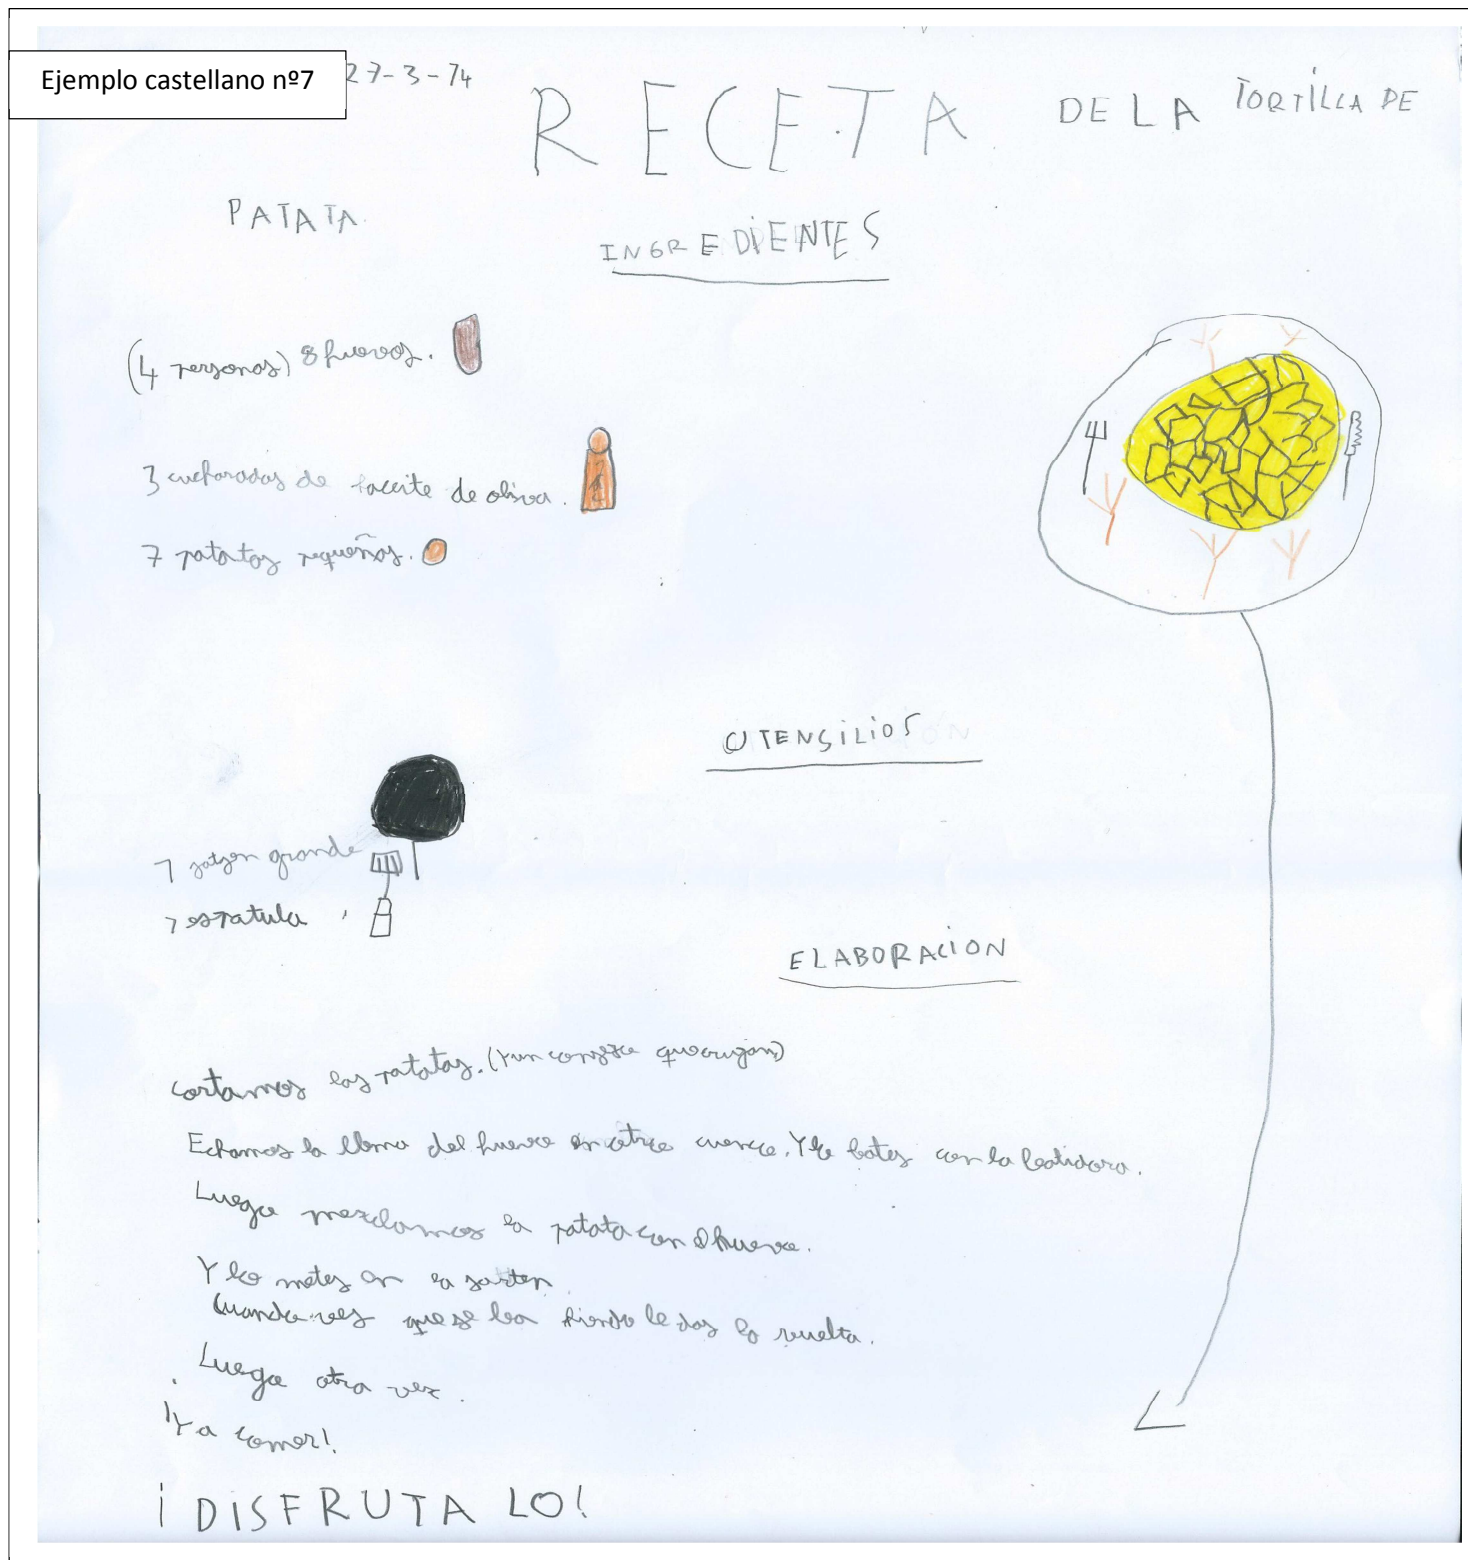 Ejemplo castellano nº7
27-3-14
RECETA DE LA TORTILLA DE
PATATA.
INGREDIENTES
(4 personas) 8 huevos.
3 cucharadas de aceite de oliva.
7 patatas pequeñas.
UTENSILIOS
1 satgen grande
1 espatula
ELABORACION
cortamos las patatas. (Y un consejo que crujan)
Echamos la llema del huevo en otro cuenco. Y lo bates con la batidora.
Luego mezclamos la patata con el huevo.
Y lo metes en la sarten
Cuando ves que se ba friendo le das la vuelta.
Luego otra vez.
¡Y a comer!
¡DISFRUTA LO!